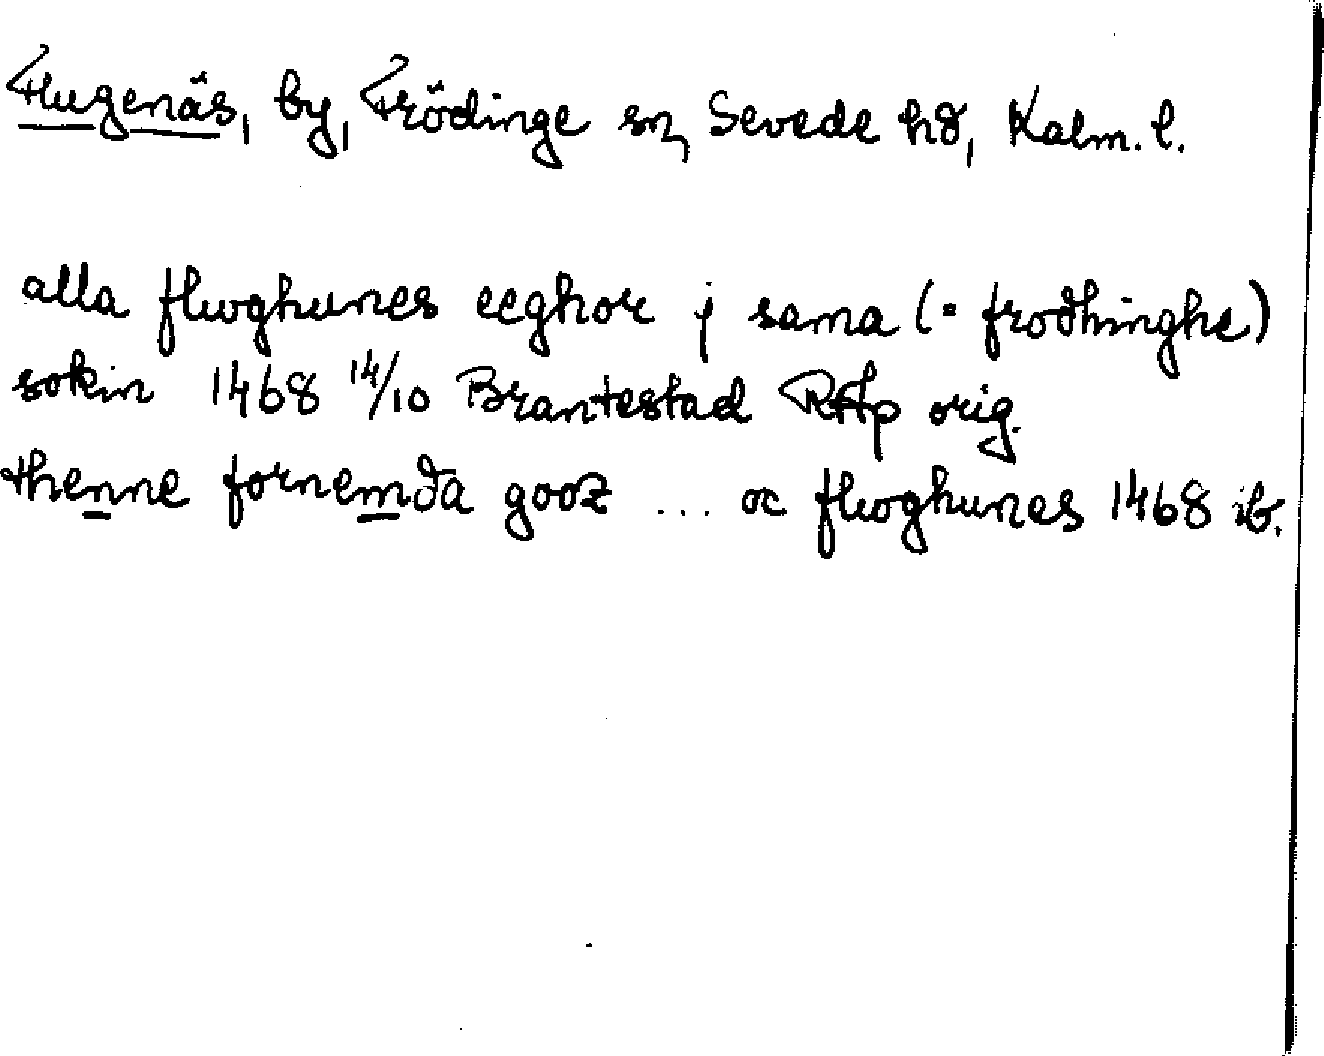 Flugenäs, by, Frödinge sn, Sevede hd, Kalm. l.
alla flwghunes eeghor j sama (= frodhinghe)
sokin 1468 14/10 Brantestad RAp orig.
thenne fornemda gooz ... oc flwghunes 1468 ib.